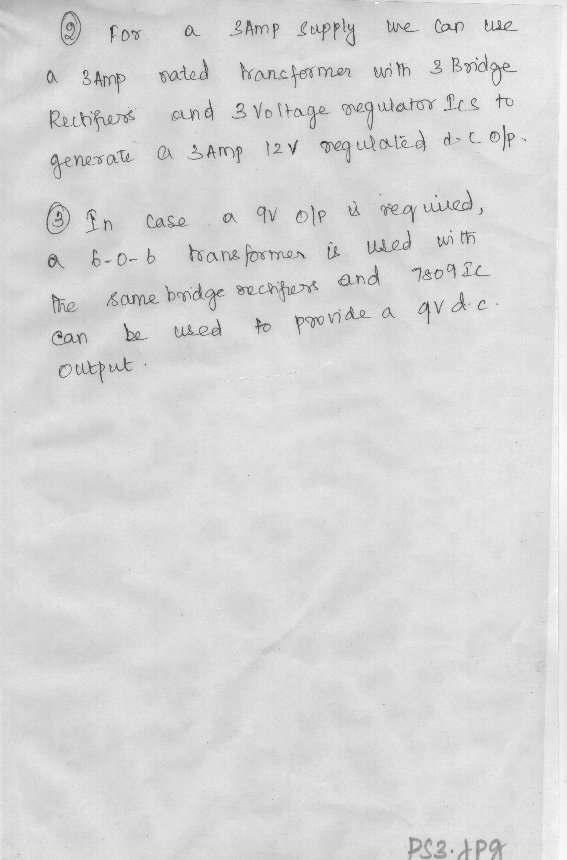 ② For a 3Amp supply we can use
a 3Amp rated transformer with 3 Bridge
Rectifiers and 3 Voltage regulator Ics to
generate a 3Amp 12V regulated d.c o/p.
③ In case a 9V o/p is required,
a 6-0-6 transformer is used with
the same bridge rectifiers and 7809 IC
can be used to provide a 9V d.c.
output.
PS3.JPG